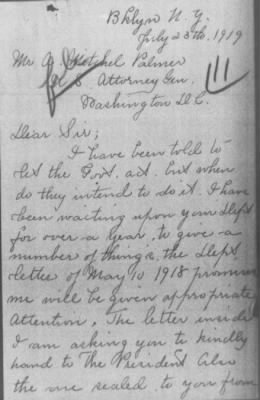 Bklyn N. Y.
July 25th, 1919
Mr. A. Mitchel Palmer
U. S. Attorney Gen.
Washington D.C.
Dear Sir;
I have been told to
let the Govt. act. but when
do they intend to do it. I have
been waiting upon your Dept
for over a year, to give a
number of things, the Depts
letter of May 10 1918 promised
me will be given appropriate
Attention. The letter inside
I am asking you to kindly
hand to The President Also
the one sealed to you from